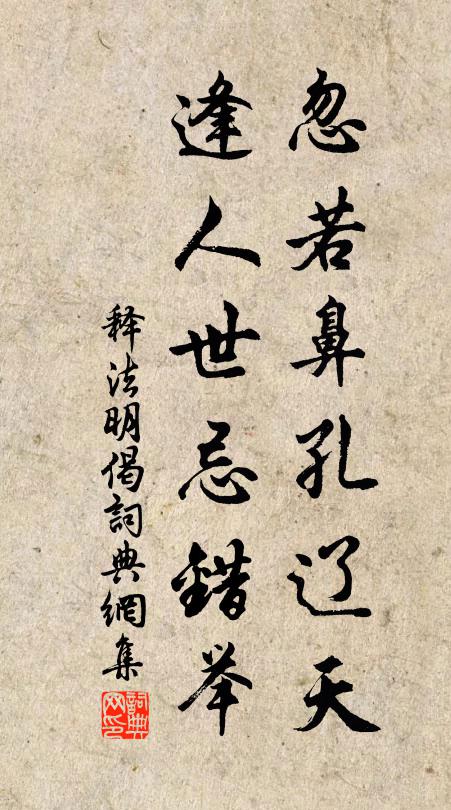 忽若鼻孔辽天
逢人世忌错举
释法明偈詞典網集
詞典网印